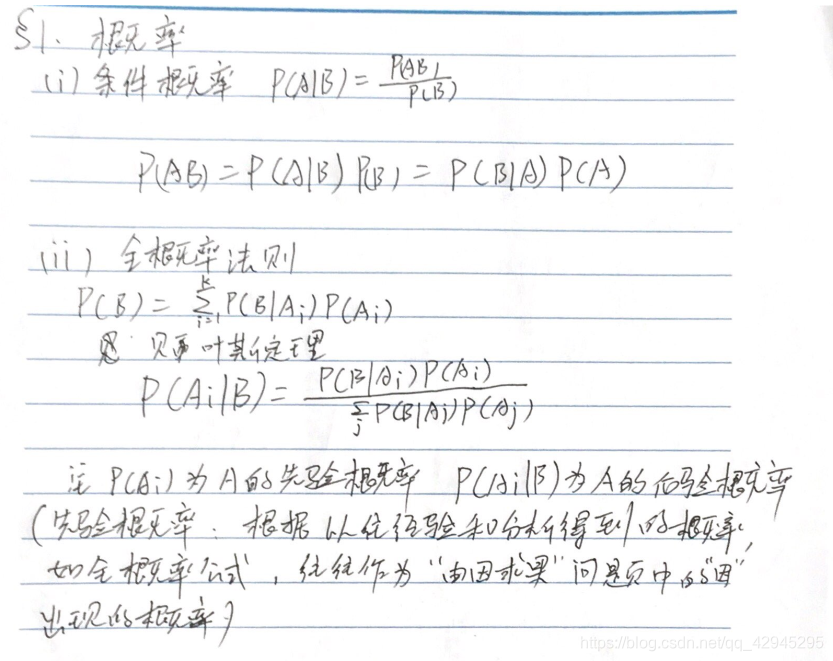 §1. 概率
(i) 条件概率 P(A|B) = P(AB) / P(B)
P(AB) = P(A|B) P(B) = P(B|A) P(A)
(ii) 全概率法则
P(B) = ∑_{i=1}^{k} P(B|Ai) P(Ai)
贝叶斯定理
P(Ai|B) = P(B|Ai) P(Ai) / ∑_j P(B|Aj) P(Aj)
注 P(Ai) 为 A 的先验概率 P(Ai|B) 为 A 的后验概率
(先验概率: 根据以往经验和分析得到的概率,
如全概率公式, 往往作为“由因求果”问题中的“因”
出现的概率)
https://blog.csdn.net/qq_42945295